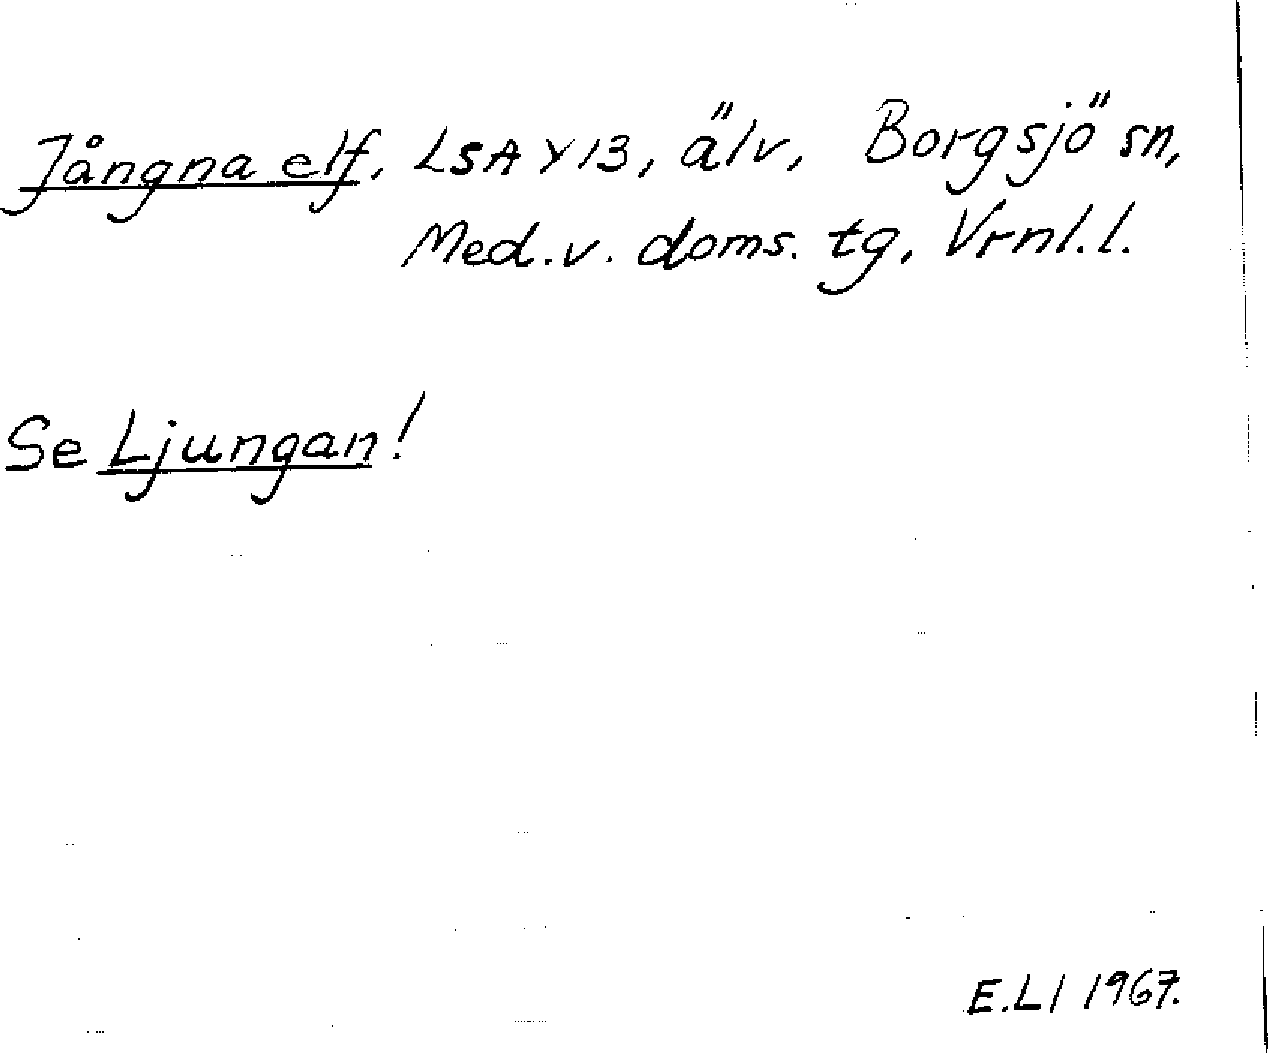 Jångna elf, LSA Y13, älv, Borgsjö sn,
Med.v. doms. tg, Vrnl.l.
Se Ljungan!
E.Ll 1967.